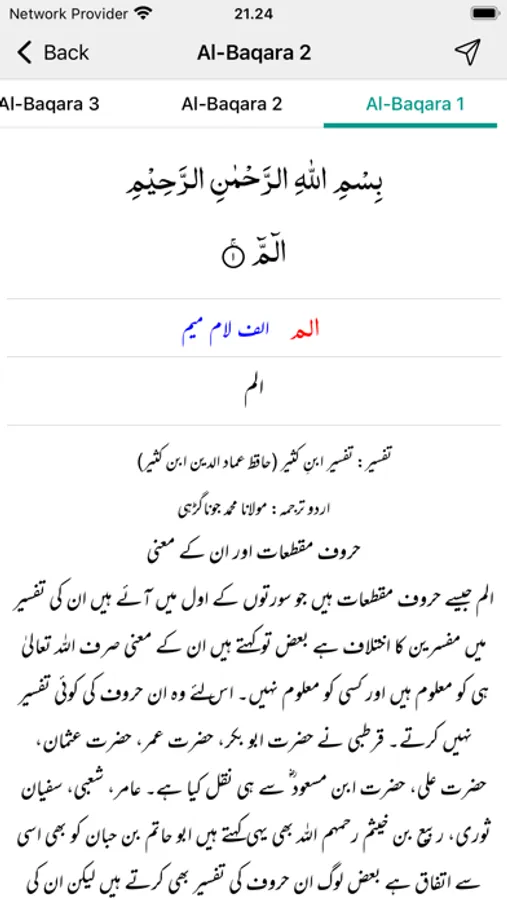 Network Provider 21.24
Back Al-Baqara 2
Al-Baqara 3 Al-Baqara 2 Al-Baqara 1
بِسْمِ اللّٰهِ الرَّحْمٰنِ الرَّحِیْمِ
الٓمّٓ ۚ﴿۱﴾
الم الف لام میم
الم
تفسیر: تفسیر ابنِ کثیر (حافظ عماد الدین ابن کثیر)
اردو ترجمہ: مولانا محمد جوناگڑہی
حروف مقطعات اور ان کے معنی
الم جیسے حروف مقطعات ہیں جو سورتوں کے اول میں آئے ہیں ان کی تفسیر
میں مفسرین کا اختلاف ہے بعض تو کہتے ہیں ان کے معنی صرف اللہ تعالیٰ
ہی کو معلوم ہیں اور کسی کو معلوم نہیں۔ اس لئے وہ ان حروف کی کوئی تفسیر
نہیں کرتے۔ قرطبی نے حضرت ابو بکر، حضرت عمر، حضرت عثمان،
حضرت علی، حضرت ابن مسعودؓ سے ہی نقل کیا ہے۔ عامر، شعبی، سفیان
ثوری، ربیع بن خیثم رحمہم اللہ بھی یہی کہتے ہیں ابو حاتم بن حبان کو بھی اسی
سے اتفاق ہے بعض لوگ ان حروف کی تفسیر بھی کرتے ہیں لیکن ان کی